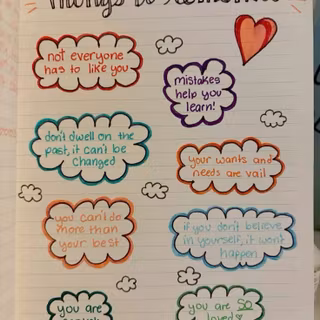 Things to
not everyone
has to like you
mistakes
help you
learn!
don't dwell on the
past, it can't be
changed
your wants and
needs are vail
you can't do
more than
your best
if you don't believe
in yourself, it wont
happen
you are
you are SO
loved